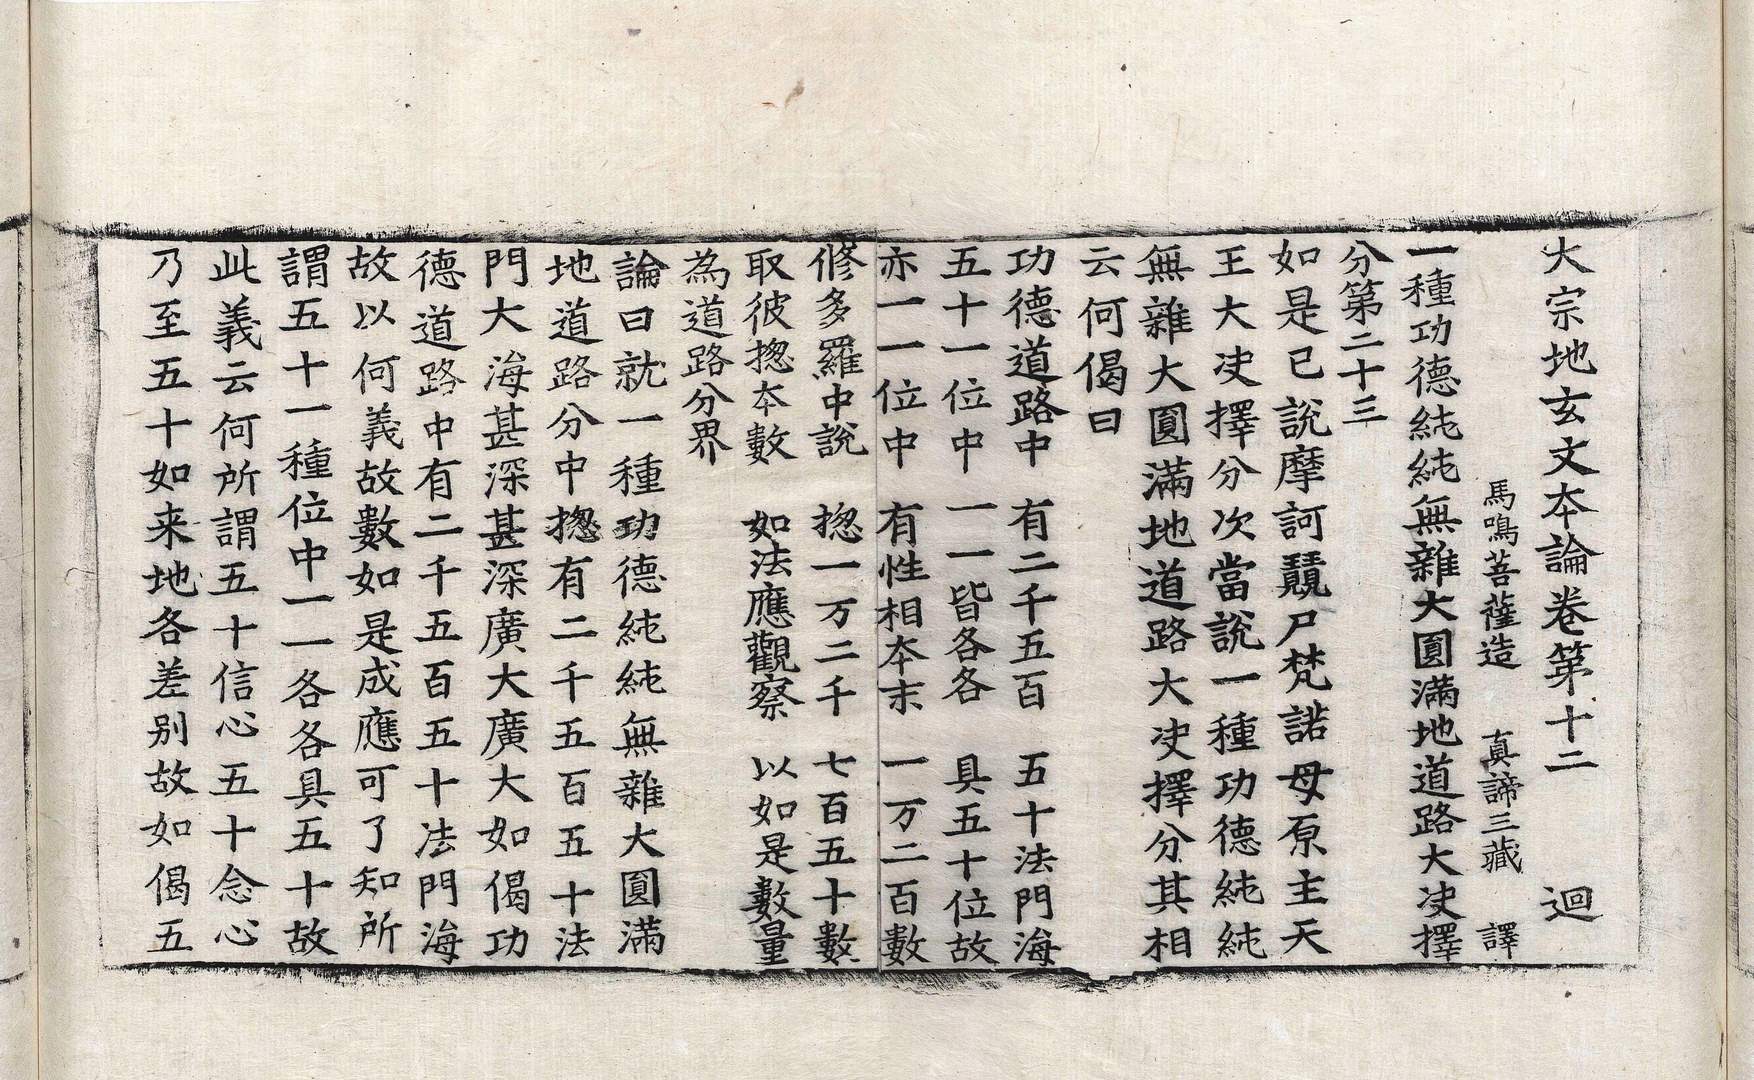 大宗地玄文本論卷第十二　迴
馬鳴菩薩造　真諦三藏　譯
一種功德純純無雜大圓滿地道路大決擇
分第二十三
如是已說摩訶覞尸梵諾母原主天
王大決擇分次當說一種功德純純
無雜大圓滿地道路大決擇分其相
云何偈曰
功德道路中　有二千五百　五十法門海
五十一位中　一一皆各各　具五十位故
亦一一位中　有性相本末　一万二百數
修多羅中說　揔一万二千　七百五十數
取彼揔本數　如法應觀察　以如是數量
為道路分界
論曰就一種功德純純無雜大圓滿
地道路分中揔有二千五百五十法
門大海甚深甚深廣大廣大如偈功
德道路中有二千五百五十法門海
故以何義故數如是成應可了知所
謂五十一種位中一一各各具五十故
此義云何所謂五十信心五十念心
乃至五十如来地各差別故如偈五